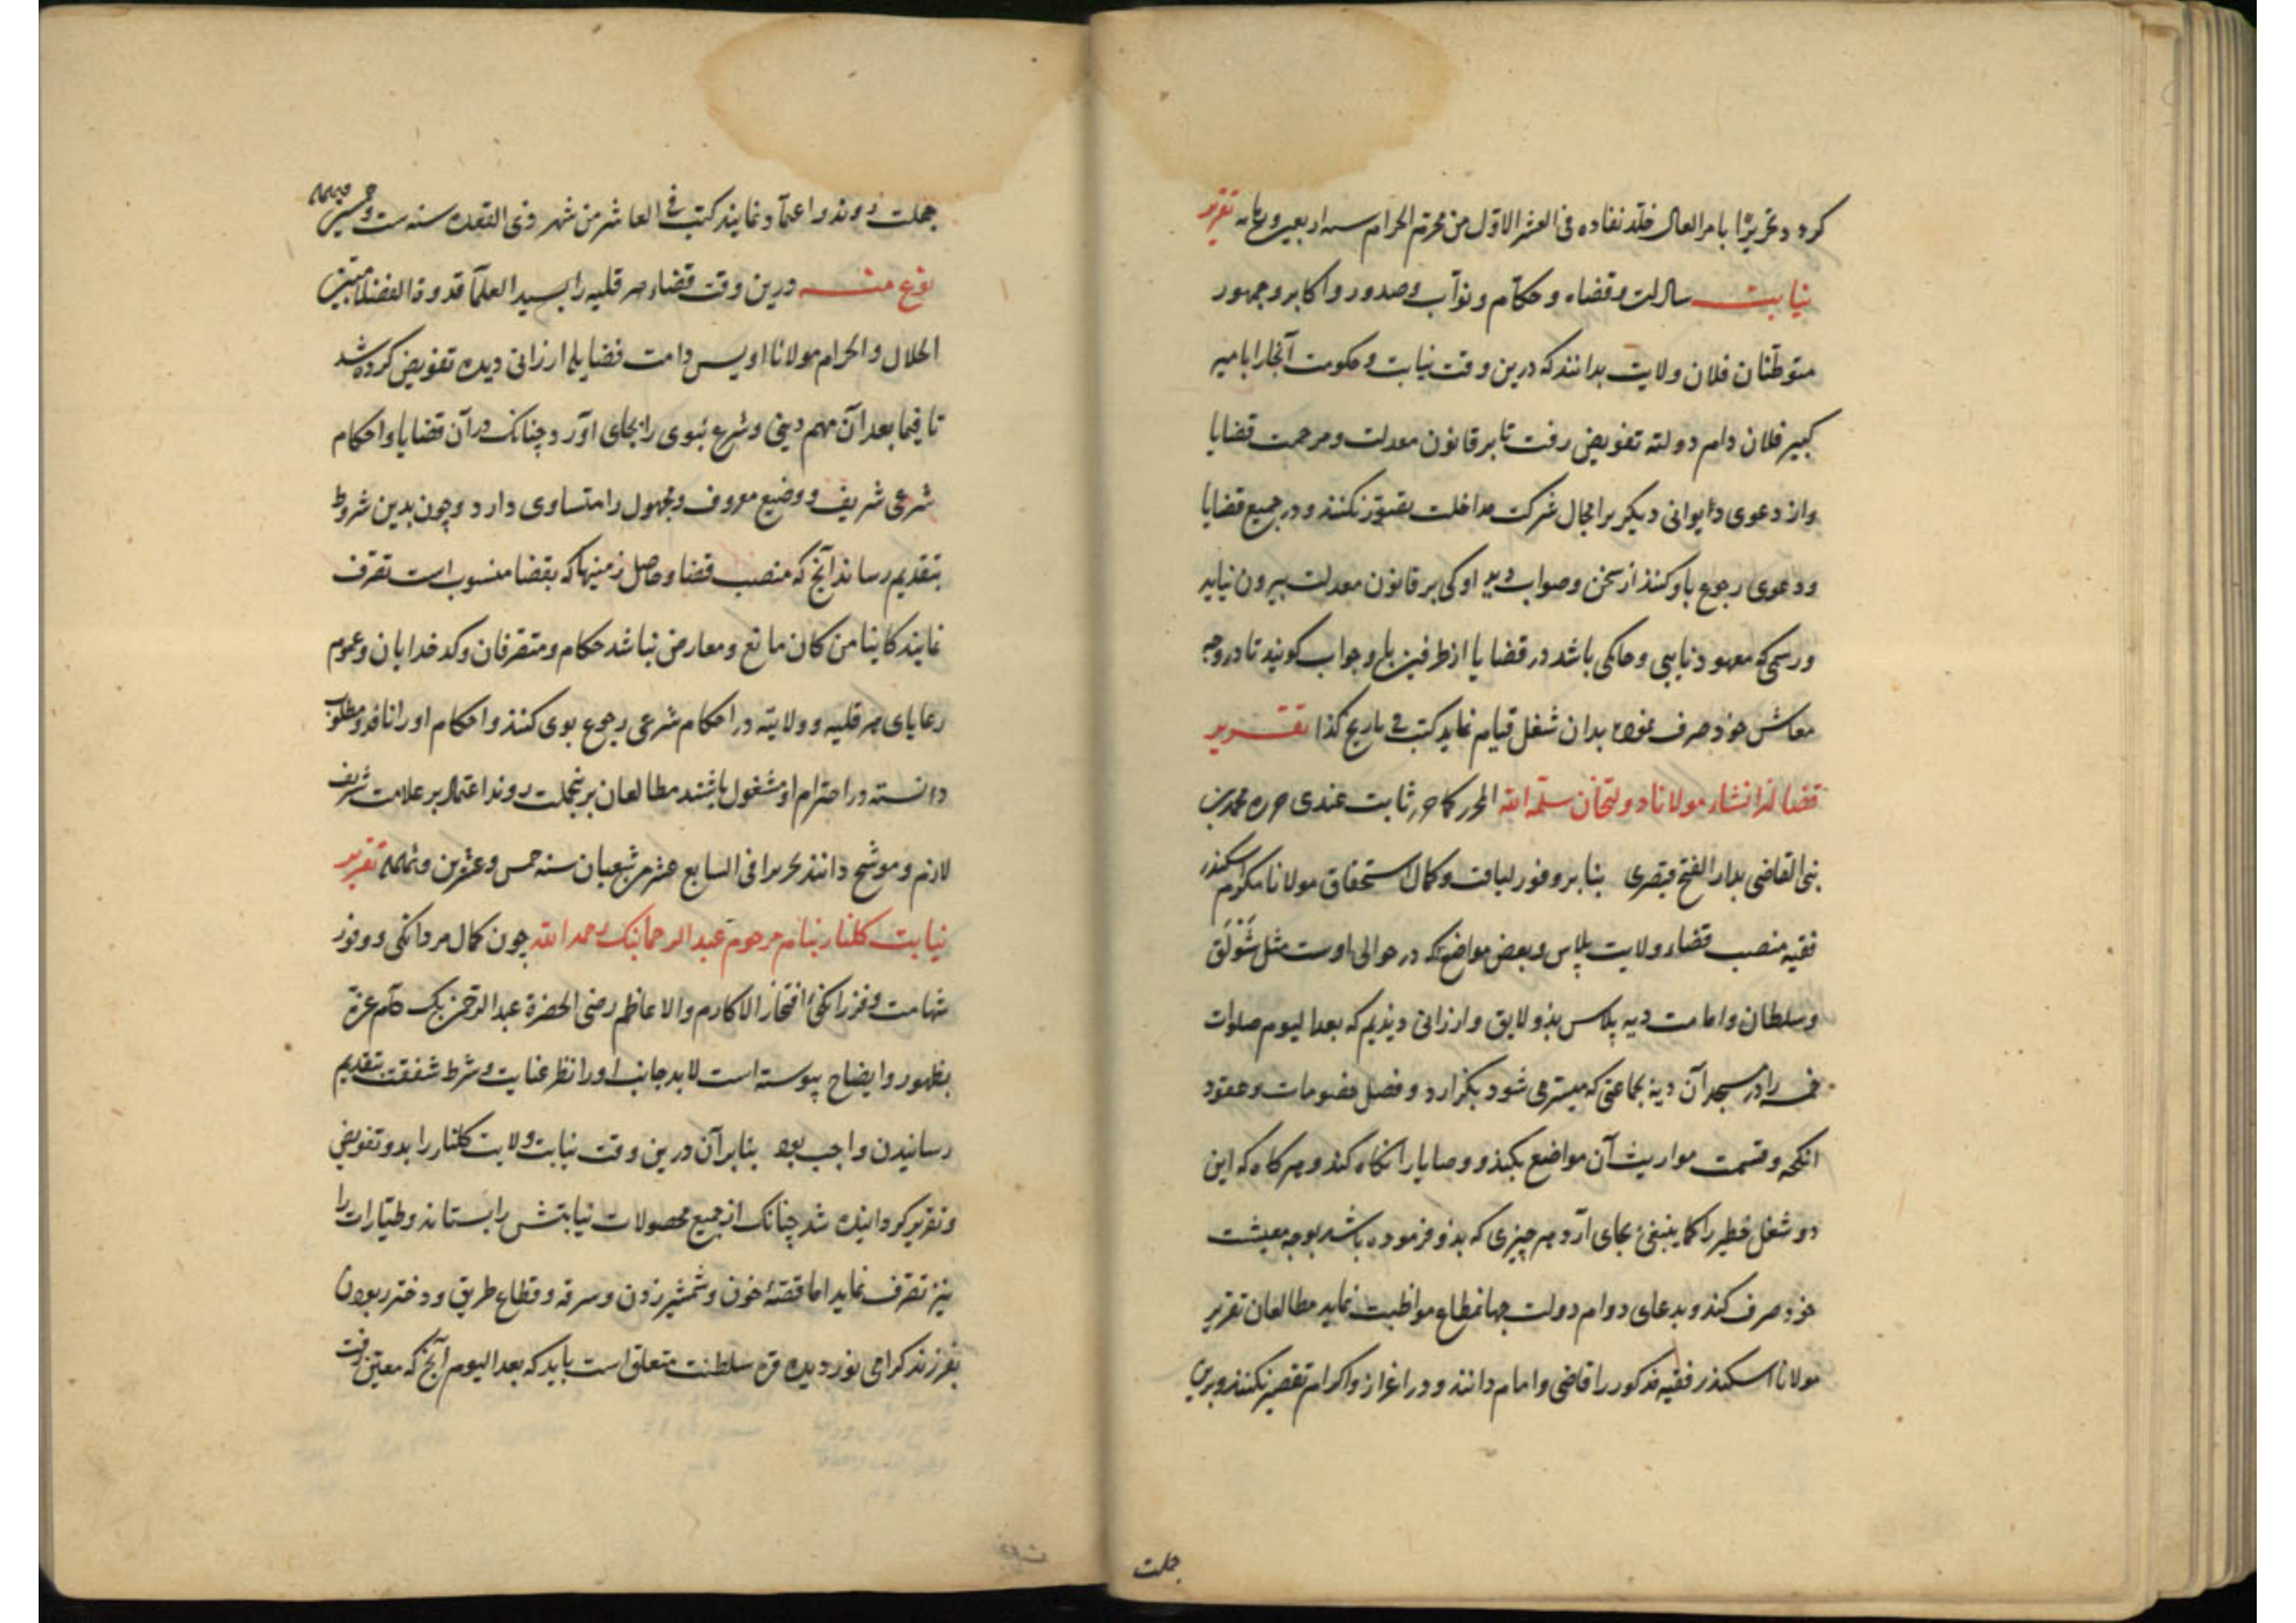 کردد تحریرًا بامر العالی خلّد نفاده فی العشر الاوّل من محرّم الحرام سنه اربعین و ثمانمایه تقریر
نیابت سادات و قضاء و حکّام و نوّاب و صدور و اکابر و جمهور
متوطّنان فلان ولایت بدانند که درین وقت نیابت و حکومت آنجا را بامیر
کبیر فلان دام دولته تفویض رفت تا بر قانون معدلت و مرحمت قضایا
و از دعوی دیوانی دیگریرا مجال شرکت مداخلت نکنند و در جمیع قضایا
و دعوی رجوع باو کنند از سخن و صواب دید او کی بر قانون معدلت بیرون نیاید
و رسمی که معهود نایبی و حاکمی باشد در قضایا از طرفین و جواب کویند تا در وجه
معاش خود صرف نموده بدان شغل قیام نماید کتب فی تاریخ کذا تقریر
قضا له انشاء مولانا دولتخان سلّمه الله المحرر کما حرر ثابت عندی حرره محمد بن
القاضی بدار الفتح قیصری بنا بر وفور لیاقت و کمال استحقاق مولانا مکرم اسکندر
فقیه منصب قضاء ولایت پلاس و بعض مواضع که در حوالی اوست مثل شَوَلَق
و سلطان و امامت دیه پلاس بذو لایق و ارزانی دیذیم که بعد الیوم صلوات
خمسه را در مسجد آن دیه بجماعتی که میسّر می شود بکزارد و فصل خصومات و عقود
انکحه و قسمت مواریث آن مواضع بکند و وصایا را نکاه کند و هر کاه که این
دو شغل خطیر را کما ینبغی بجای آرد هر چیزی که بذو فرموده باشد بوجه معیشت
خود صرف کند و بدعای دوام دولت جهانمطاع مواظبت نماید مطالعان تقریر
مولانا اسکندر فقیه مذکور را قاضی و امام دانند و در اعزاز و اکرام تقصیر نکنند و برین
جملت
جملت روند و اعتماد نمایند کتب فی العاشر من شهر ذی القعده سنه ست و خمسین و ثمانمایه
نوع منه درین وقت قضاء هرقلیه را بسید العلمآ قدوة الفضلا مبیّن
الحلال و الحرام مولانا اویس دامت فضایله ارزانی دیده تفویض کرده شد
تا فیما بعد آن مهم دینی و شرع نبوی را بجای آورد چنانک در آن قضایا و احکام
شرعی شریف و وضیع معروف و مجهول را متساوی دارد و چون بدین شروط
بتقدیم رساند آنچ که منصب قضا و حاصل زمینها که بقضا منسوب است تصرف
نمایند کاینا من کان مانع و معارض نباشد حکام و متصرفان و کدخدایان و عموم
رعایای هرقلیه و ولایته در احکام شرعی رجوع بوی کنند و احکام او را نافذ و مطلوب
دانسته در احترام او مشغول باشند مطالعان برینجملت روند اعتماد بر علامت شریف
لازم و موشّح دانند تحریرا فی السابع عشر من شعبان سنه خمس و عشرین و ثمانمایه تقریر
نیابت کلنار بنام مرحوم عبد الرحمانبک رحمه الله چون کمال مردانکی و وفور
شهامت و فرزانکئ افتخار الاکارم والاعاظم رضی الحضرة عبد الرحمن بک دام عزه
بظهور و ایضاح پیوسته است لابد جانب او را نظر عنایت و شرط شفقت بتقدیم
رسانیدن واجب بود بنابر آن درین وقت نیابت ولایت کلنار را بدو تفویض
و تقریر کردانیده شد چنانک از جمیع محصولات نیابتش را بستاند و طیّارات را
نیز تصرف نماید اما قصّهٔ خون و شمشیر زدن و سرقه و قطاع طریق و دختر ربودن
بفرزند کرامی نور دیده قره سلطنت متعلق است باید که بعد الیوم آنچ که معین رفت